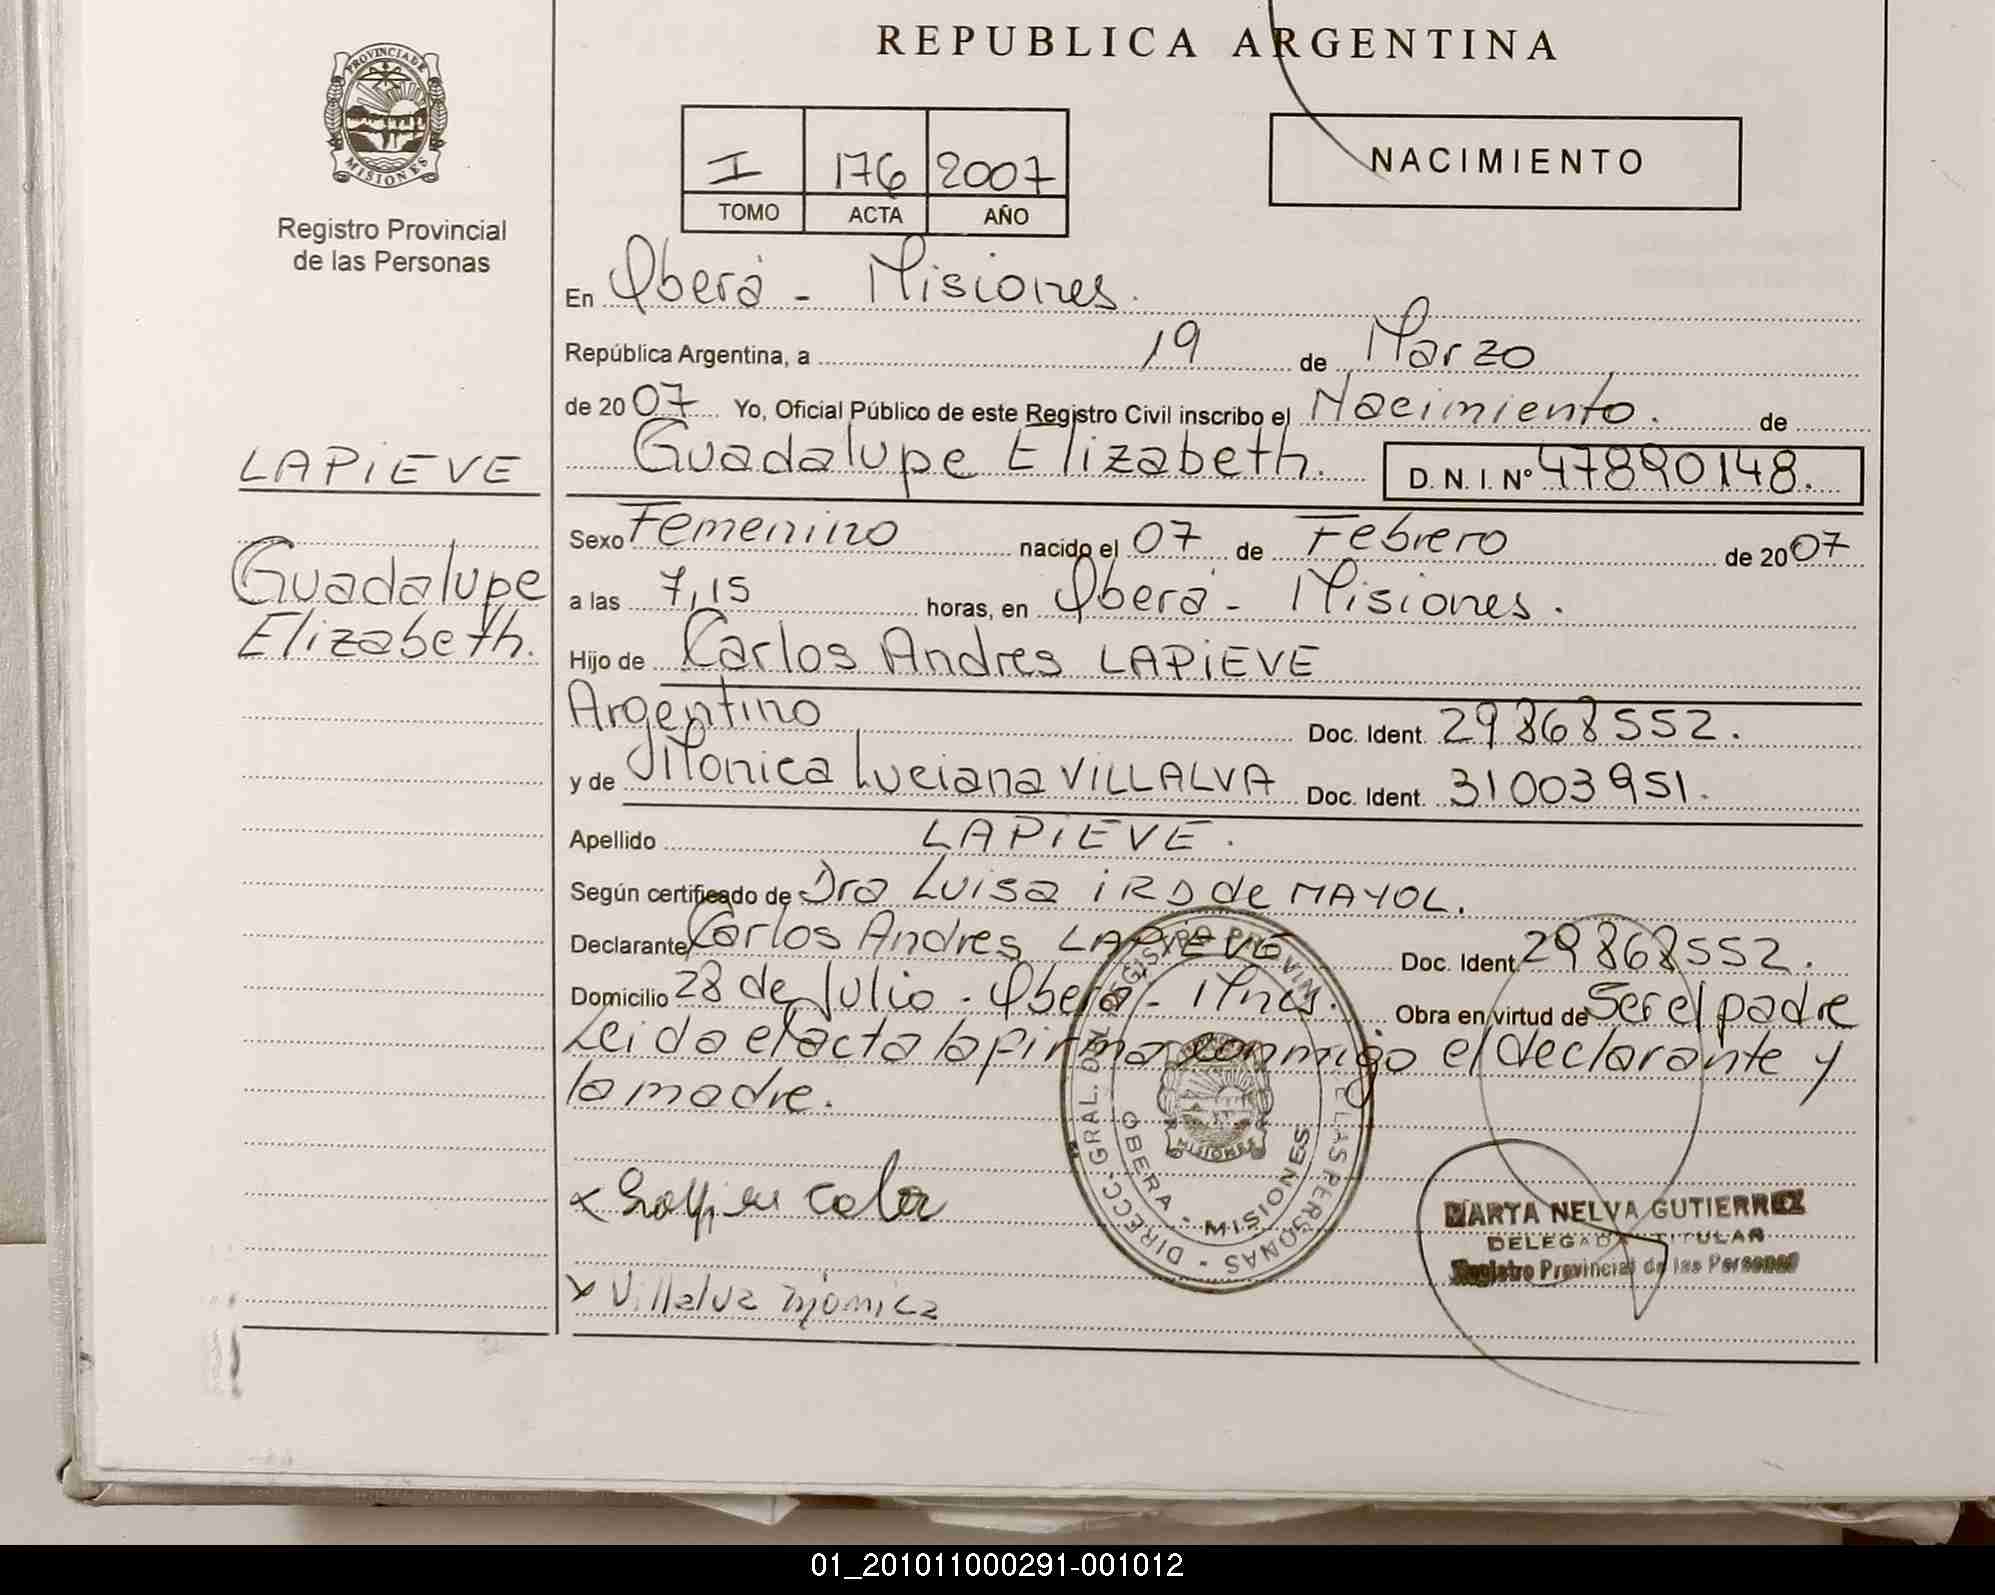 REPUBLICA ARGENTINA
PROVINCIA DE
MISIONES
Registro Provincial
de las Personas
I 176 2007
TOMO ACTA AÑO
NACIMIENTO
En Oberá - Misiones.
República Argentina, a 19 de Marzo
de 2007 Yo, Oficial Público de este Registro Civil inscribo el Nacimiento. de
Guadalupe Elizabeth. D. N. I. Nº 47890148.
LAPIEVE
Guadalupe
Elizabeth.
Sexo Femenino nacido el 07 de Febrero de 2007
a las 7,15 horas, en Oberá - Misiones.
Hijo de Carlos Andres LAPIEVE
Argentino Doc. Ident. 29868552.
y de Monica Luciana VILLALVA Doc. Ident. 31003951.
Apellido LAPIEVE.
Según certificado de Dra Luisa IRD de MAYOL.
Declarante Carlos Andres LAPIEVE Doc. Ident. 29868552.
Domicilio 28 de Julio - Oberá - Mnes. Obra en virtud de Ser el padre
Leida el acta la firma conmigo el declarante y
la madre.
DIRECC. GRAL. DEL REGISTRO PROVINCIAL DE LAS PERSONAS
OBERA - MISIONES
MISIONES
x Villalva Mónica
MARTA NELVA GUTIERREZ
DELEGADA TITULAR
Registro Provincial de las Personas
01_201011000291-001012